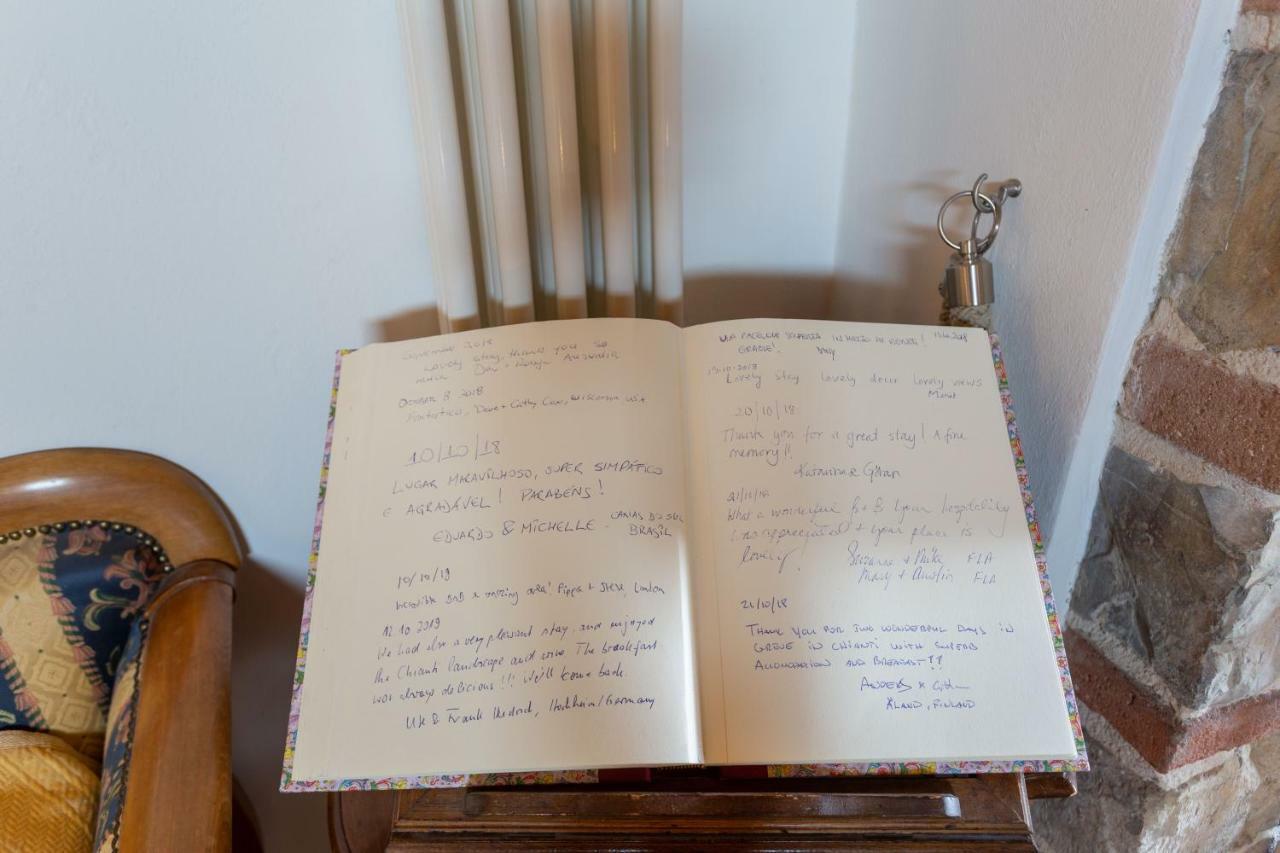 2018
Lovely stay, thank you so
much Australia
October 8 2018
Fantastico, Dave + Cathy Wisconsin USA
10/10/18
LUGAR MARAVILHOSO, SUPER SIMPÁTICO
E AGRADÁVEL! PARABÉNS!
EDUARDO & MICHELLE - CAXIAS DO SUL
BRASIL
10/10/19
Incredible BnB & amazing area! Pippa + Steve, London
12.10.2019
We had also a very pleasant stay and enjoyed
the Chianti landscape and wine. The breakfast
was always delicious!!! We'll come back.
& Frank Hockenheim/Germany
UNA PIACEVOLE SCOPERTA IN MEZZO AI 2018
GRAZIE!
19.10.2018
Lovely stay lovely decor lovely views
20/10/18
Thank you for a great stay! A fine
memory!!
Katarina & Göran
21/10/18
What a wonderful B+B! Your hospitality
was appreciated + your place is
lovely! Suzanne + Mike FLA
Mary + Austin FLA
21/10/18
THANK YOU FOR TWO WONDERFUL DAYS IN
GREVE IN CHIANTI WITH SUPERB
ACCOMODATION AND BREAKFAST!!
ANDERS &
ÅLAND, FINLAND